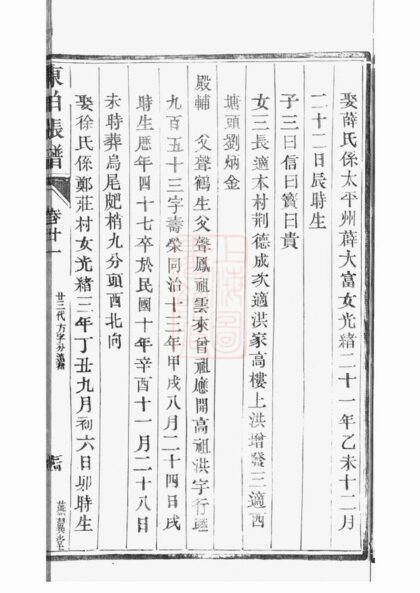 娶薛氏係太平州薛大富女光緒二十一年乙未十二月
二十二日辰時生
子三曰信曰寶曰貴
女三長適木村荆德成次適洪家高樓上洪增發三適西
塘頭劉炳金
殿輔 父聲鶴生父聲鳳祖雲來曾祖應開高祖洪字行
九百五十三字壽榮同治十三年甲戌八月二十四日戌
時生歷年四十七卒於民國十年辛酉十一月二十八日
未時葬烏尾䶕梢九分頭西北向
娶徐氏係鄭莊村女光緒三年丁丑九月初六日卯時生
東白張譜
卷廿一
廿三代方字分
燕翼堂